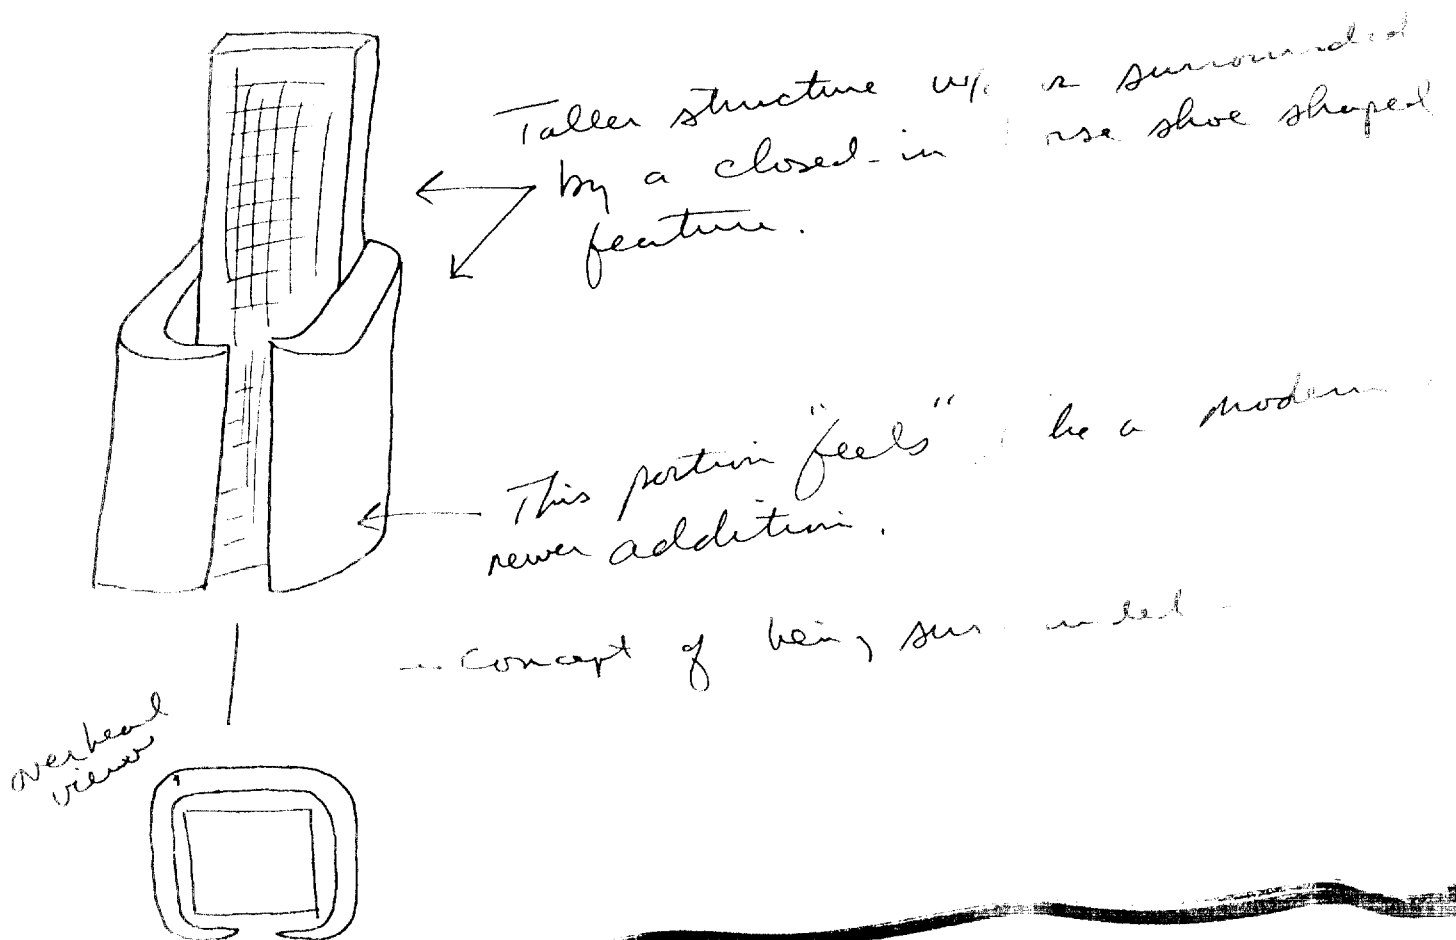 Taller structure w/ or surrounded
by a closed-in rse shoe shaped
feature.
This portion "feels" be a modern
newer addition.
concept of being sur unded
overhead
view